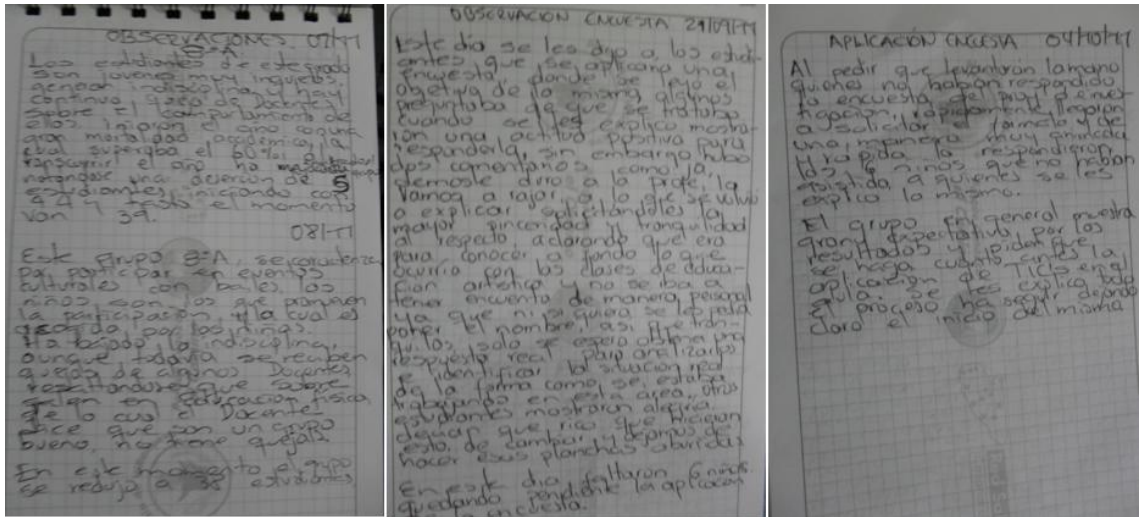 OBSERVACIONES 07/11
8-A
Los estudiantes de este grado
son jovenes muy inquietos,
generan indisciplina y hay
continua queja de Docentes
sobre el comportamiento de
ellos. Iniciaron el año con una
gran mortalidad académica, la
cual superaba el
transcurrir el año ha
notandose una deserción de 5
estudiantes, iniciando con
44 y hasta el momento
van 39.
08/11
Este grupo 8-A, se caracteriza
por participar en eventos
culturales con bailes, los
niños son los que promueven
la participación, la cual es
por las niñas.
Ha bajado la indisciplina,
aunque todavia se reciben
quejas de algunos Docentes
resaltandose que sobre
salen en Educación física
de lo cual el Docente
dice que son un grupo
bueno, no tiene quejas.
En este momento el grupo
se redujo a 38 estudiantes
OBSERVACIÓN ENCUESTA 29/09/11
Este dia se les dijo a los estudi-
antes que se aplicaria una
encuesta, donde se leyo el
objetivo de la misma, algunos
preguntaba de que se trataba
cuando se les explico mostra-
ron una actitud positiva para
responderla, sin embargo hubo
dos comentarios como ja,
demosle duro a la profe, la
vamos a rajar, a lo que se volvio
a explicar solicitandoles la
mayor sinceridad y tranquilidad
al respecto, aclarando que era
para conocer a fondo lo que
ocurria con las clases de educa-
ción artistica y no se iba a
tener encuenta de manera personal
ya que ni si quiera se les pedia
poner el nombre, asi que tran-
quilos, solo se espera obtener una
respuesta real para analizarlos
e identificar la situación real
de la forma como se estaba
trabajando en esta area, otros
estudiantes mostraron alegria,
decian que rico que hicieran
esto, de cambiar y dejamos de
hacer esas planchas aburridas
En este dia faltaron 6 niños
quedando pendiente la aplicacion
encuesta.
APLICACIÓN ENCUESTA 04/10/11
Al pedir que levantaran la mano
quienes no habian respondido
la encuesta del proy. de inves-
tigacion, rapidamente llegaron
a solicitar el formato y de
una manera muy animada
y rapida la respondieron
los 6 niños que no habian
asistido, a quienes se les
explico lo mismo.
El grupo en general muestra
gran expectativa por los
resultados y piden que
se haga cuanto antes la
aplicación de TICS en el
aula. Se les explica todo
el proceso ha seguir dejando
claro el inicio del mismo